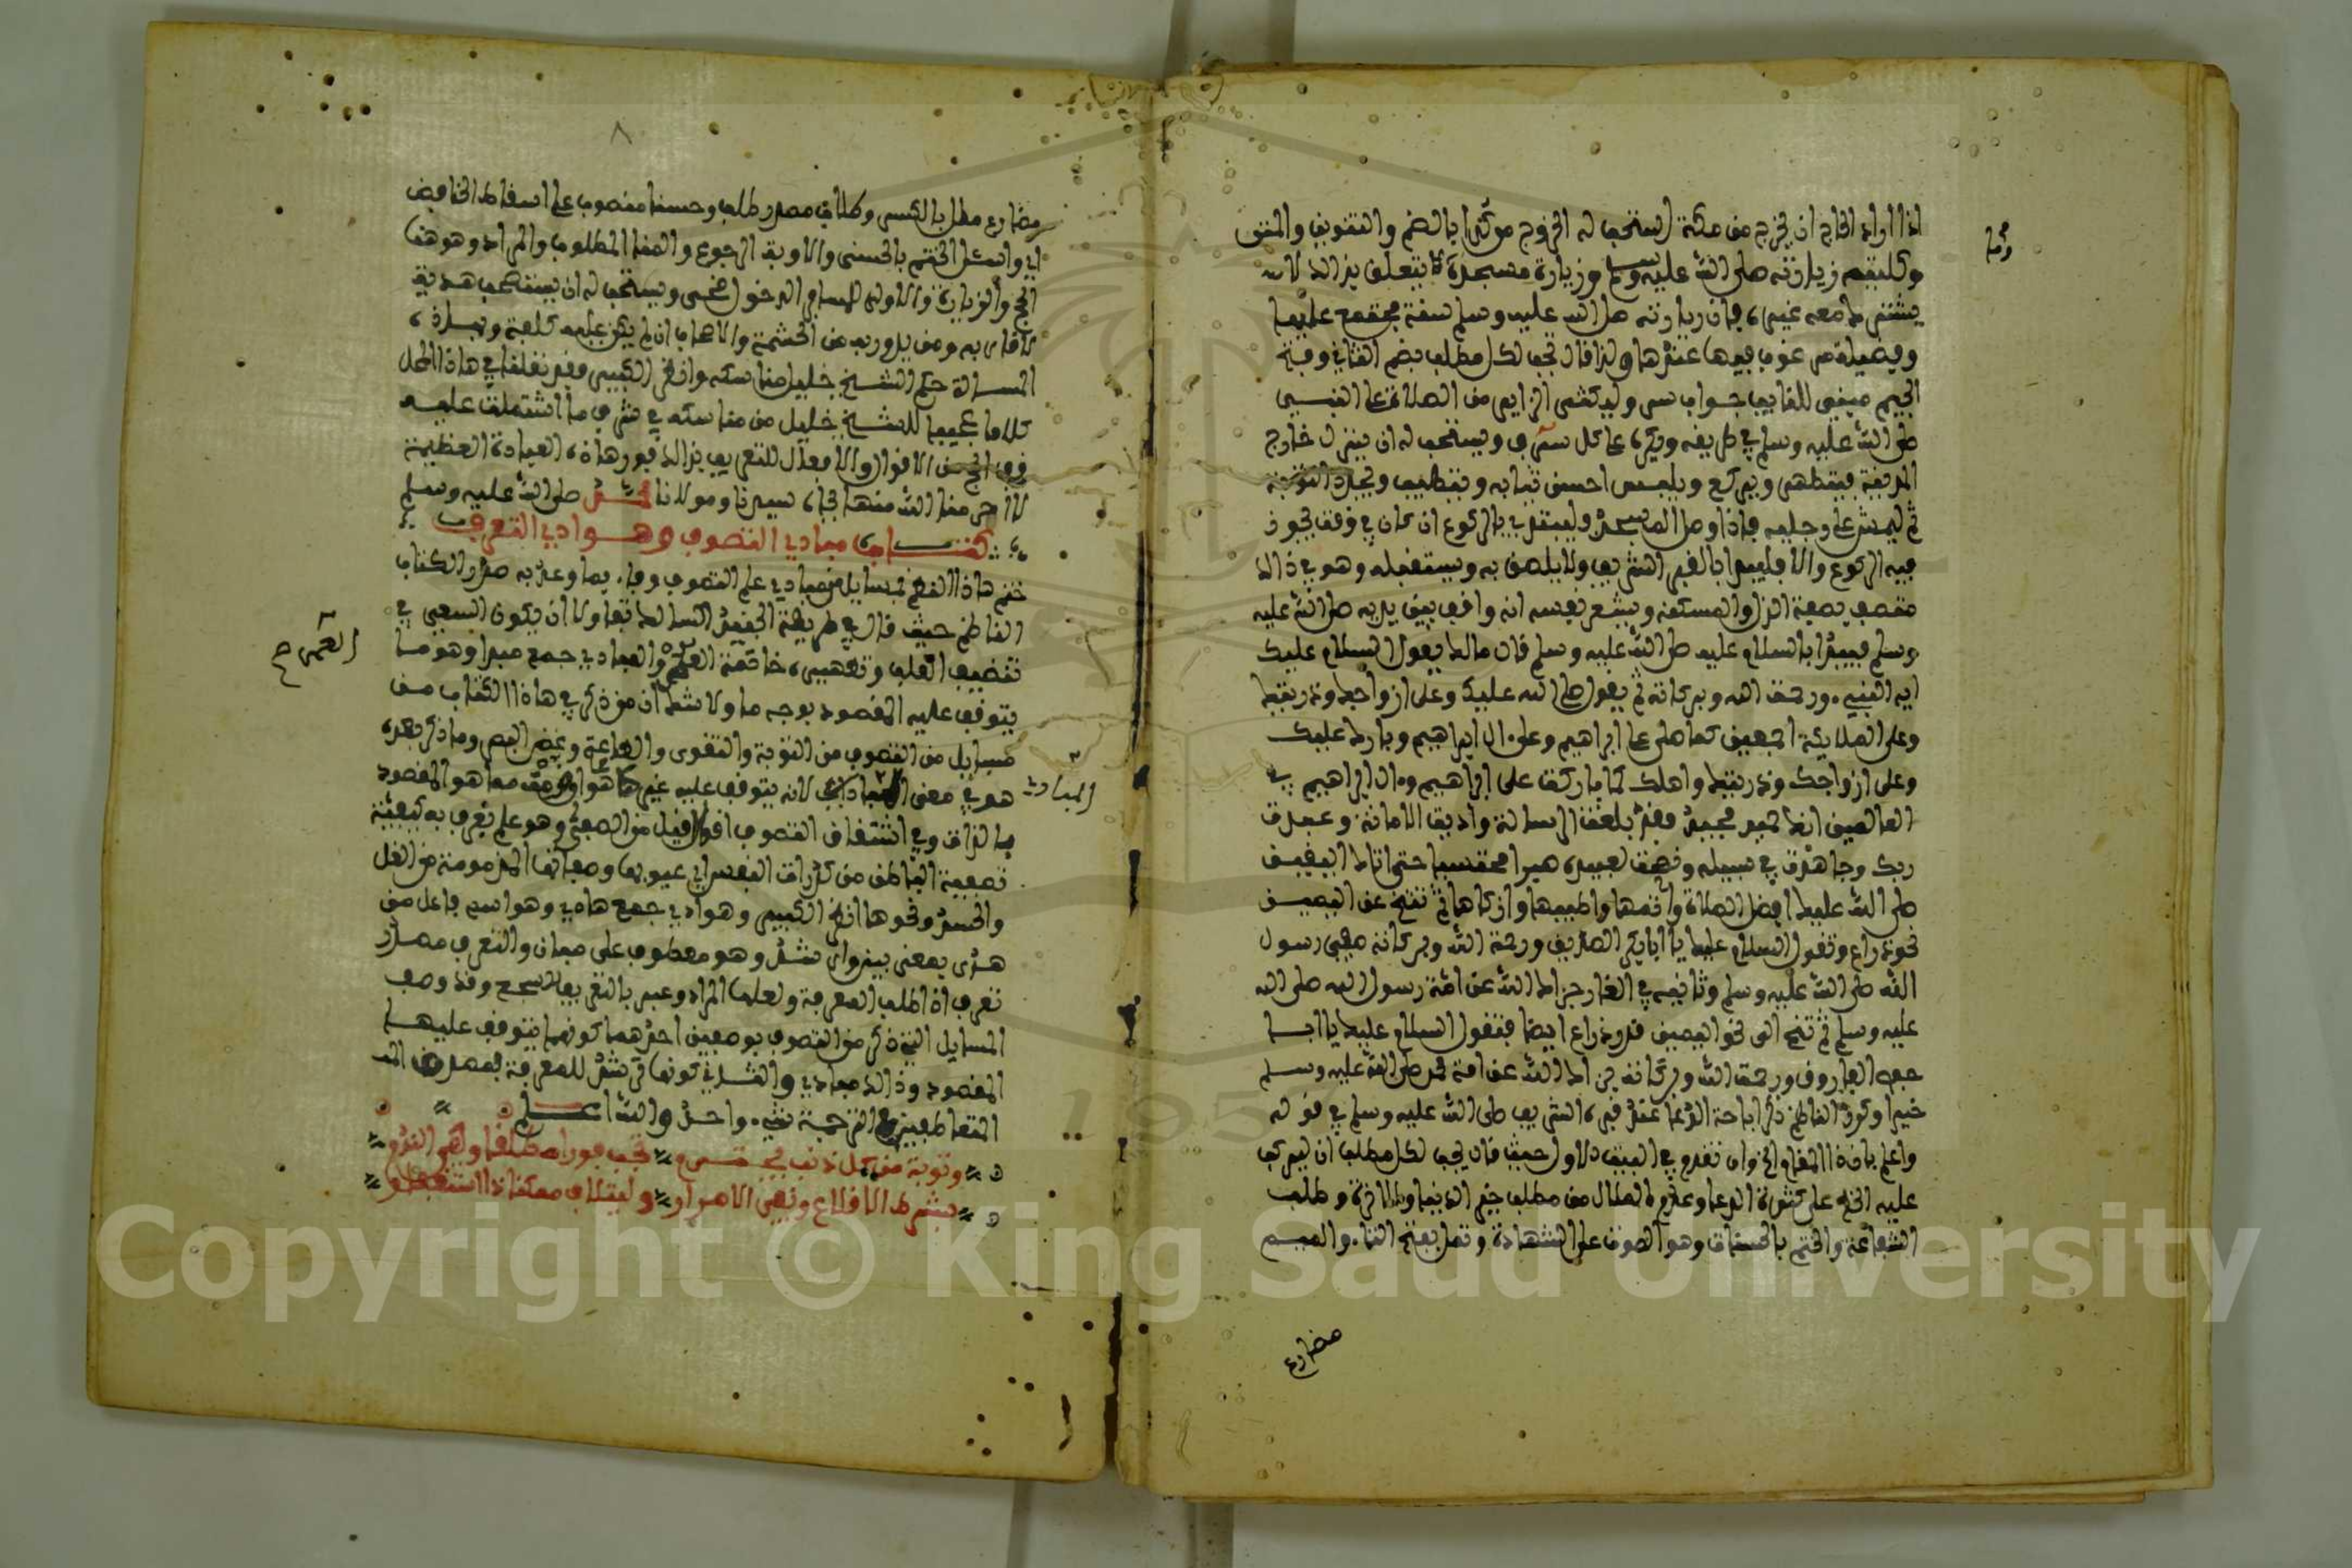 اذا اراد الحاج ان يخرج من مكة استحب له الخروج من كدا بالضم والتنوين
ولتكن نيته زيارته صلى الله عليه وسلم وزيارة مسجده وما يتعلق بذالك لانه
معه غيره فان زيارته صلى الله عليه وسلم سنة مجتمع عليها
وفضيلة مرغوب فيها عندها ولذا قال تجب لكل مطلب بضم التاء وفتح
الجيم مبني للغايب جواب سر وليكثر الزاير من الصلاة على النبي
صلى الله عليه وسلم في طريقه ويكبر على كل شرف ويستحب له ان ينزل خارج
المدينة فيتطهر ويركع ويلبس احسن ثيابه ويتطيب ويجدد التوبة
ثم ليمش على رجليه فاذا وصل المسجد فليبتد بالركوع ان كان في وقت يجوز
فيه الركوع والا فليبدا بالقبر الشريف ولا يلصق به ويستقبله وهو في ذالك
متصف بصفة الذل والمسكنة ويشعر نفسه انه واقف بين يديه صلى الله عليه
وسلم فيبدا بالسلام عليه صلى الله عليه وسلم قال مالك يقول السلام عليك
ايها النبيء ورحمة الله وبركاته ثم يقول صلى الله عليك وعلى ازواجك وذريتك
وعلى اهلك اجمعين كما صلى على ابراهيم وعلى ال ابراهيم وبارك عليك
وعلى ازواجك وذريتك واهلك كما باركت على ابراهيم وءال ابراهيم في
العالمين انك حميد مجيد فقد بلغت الرسالة واديت الامانة وعبدت
ربك وجاهدت في سبيله ونصحت لعبيده صبرا محتسبا حتى اتاك اليقين
صلى الله عليك افضل الصلاة واتمها واطيبها وازكاها ثم تتنح عن اليمين
نحو ذراع وتقول السلام عليك يا ابا بكر الصديق ورحمة الله وبركاته صفي رسول
الله صلى الله عليه وسلم وثانيه في الغار جزاك الله عن امة رسول الله صلى الله
عليه وسلم ثم تتنح الى نحو اليمين قدر ذراع ايضا فتقول السلام عليك يا ابا
حفص الفاروق ورحمة الله وبركاته جزاك الله عن امة محمد صلى الله عليه وسلم
خيرا وكرر الناظم ذكر اجابة الدعا عند قبره الشريف صلى الله عليه وسلم في قوله
واعلم بان ذا المقام الخ وان تقدم في البيت الاول حيث قال يجب لكل مطلب ان ليرتب
عليه الحث على كثرة الدعا وعدم الملل من مطلب خير الدنيا والاخرة وطلب
الشفاعة والختم بالحسنى وهو الموت على الشهادة وتمل بفتح التاء والميم
مضارع
مضارع مل بالكسر وطلاب مصدر طلب وحسنا منصوب على اسقاط الخافض
اي واسئل الختم بالحسنى والاوبة الرجوع والمنا المطلوب والمراد وهو هنا
الحج والزيارة والاولى للمسافر الدخول ضحى ويستحب له ان يستصحب هدية
لاقاربه ومن يدور به من الحشمة والاصحاب ان لم يكن عليه كلفة
المسالة ذكر الشيخ خليل مناسكه وانظر الكبير فقد نقلنا في هاذا المحل
كلاما عجيبا للشيخ خليل من مناسكه في شرف ما اشتملت عليه
من الاقوال والافعال للتعريف بذالك قدر هاذه العبادة العظيمة
لا احرمنا الله منها بجاه سيدنا ومولانا محمد صلى الله عليه وسلم
كتاب مبادي التصوف وهوادي التعرف
ختم هاذا النظم بمسايل من مبادي علم التصوف وفاء بما وعد به صدر الكتاب
الناظم حيث قال في طريقة الجنيد السالك تفاولا ان يكون السعي في
تنظيف القلب وتطهيره خاتمة العمر والمبادي جمع مبدا وهو ما
يتوقف عليه المقصود بوجه ما ولا شك ان من ذكر في هاذا الكتاب من
مسايل من التصوف من التوبة والتقوى والطاعة وغض البصر وما ذكر بعده
هو في معنى المبادي لانه يتوقف عليه غيره مما هو المقصود
بالذات وفي اشتقاق التصوف اقوال قيل من الصفا وهو علم يعرف به كيفية
تصفية الباطن من كدرات النفس اي عيوبها وصفاتها المذمومة من الغل
والحسد ونحوها انظر الكبير وهوادي جمع هادي وهو اسم فاعل من
هدى بمعنى بين وارشد وهو معطوف على مبادي والتعرف مصدر
تعرف اذا طلب المعرفة ولعلها المراد وعبر بالتعرف للسجع وقد وصف
المسايل التي ذكر من التصوف بوصفين احدهما كونها يتوقف عليها
المقصود وذالك مبادي والثاني كونها ترشد للمعرفة
المتعاطفين في الترجمة شيء واحد والله اعلم
وتوبة من كل ذنب يجترم تجب فورا مطلقا وهي الندم
بشرط الاقلاع ونفي الاصرار وليتلاف ممكنا ذا استغفار
العمر صح
المبادي